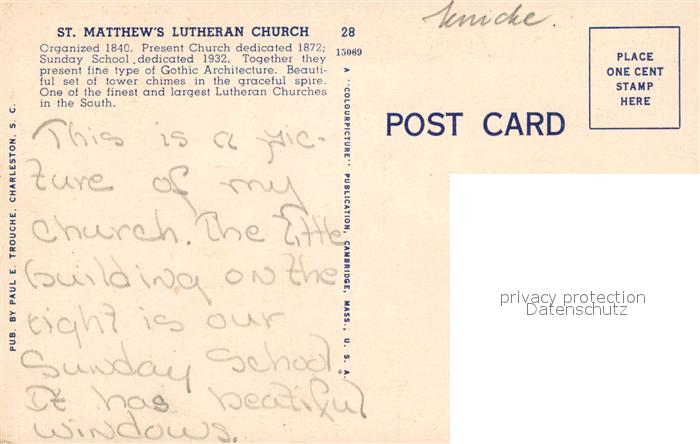 ST. MATTHEW'S LUTHERAN CHURCH
Organized 1840. Present Church dedicated 1872;
Sunday School dedicated 1932. Together they
present fine type of Gothic Architecture. Beauti-
ful set of tower chimes in the graceful spire.
One of the finest and largest Lutheran Churches
in the South.
28
15069
This is a pic-
ture of my
church. The little
building on the
right is our
Sunday School.
It has beatiful
windows.
PUB. BY PAUL E. TROUCHE, CHARLESTON, S. C.
A "COLOURPICTURE" PUBLICATION, CAMBRIDGE, MASS., U. S. A.
POST CARD
PLACE
ONE CENT
STAMP
HERE
privacy protection
Datenschutz